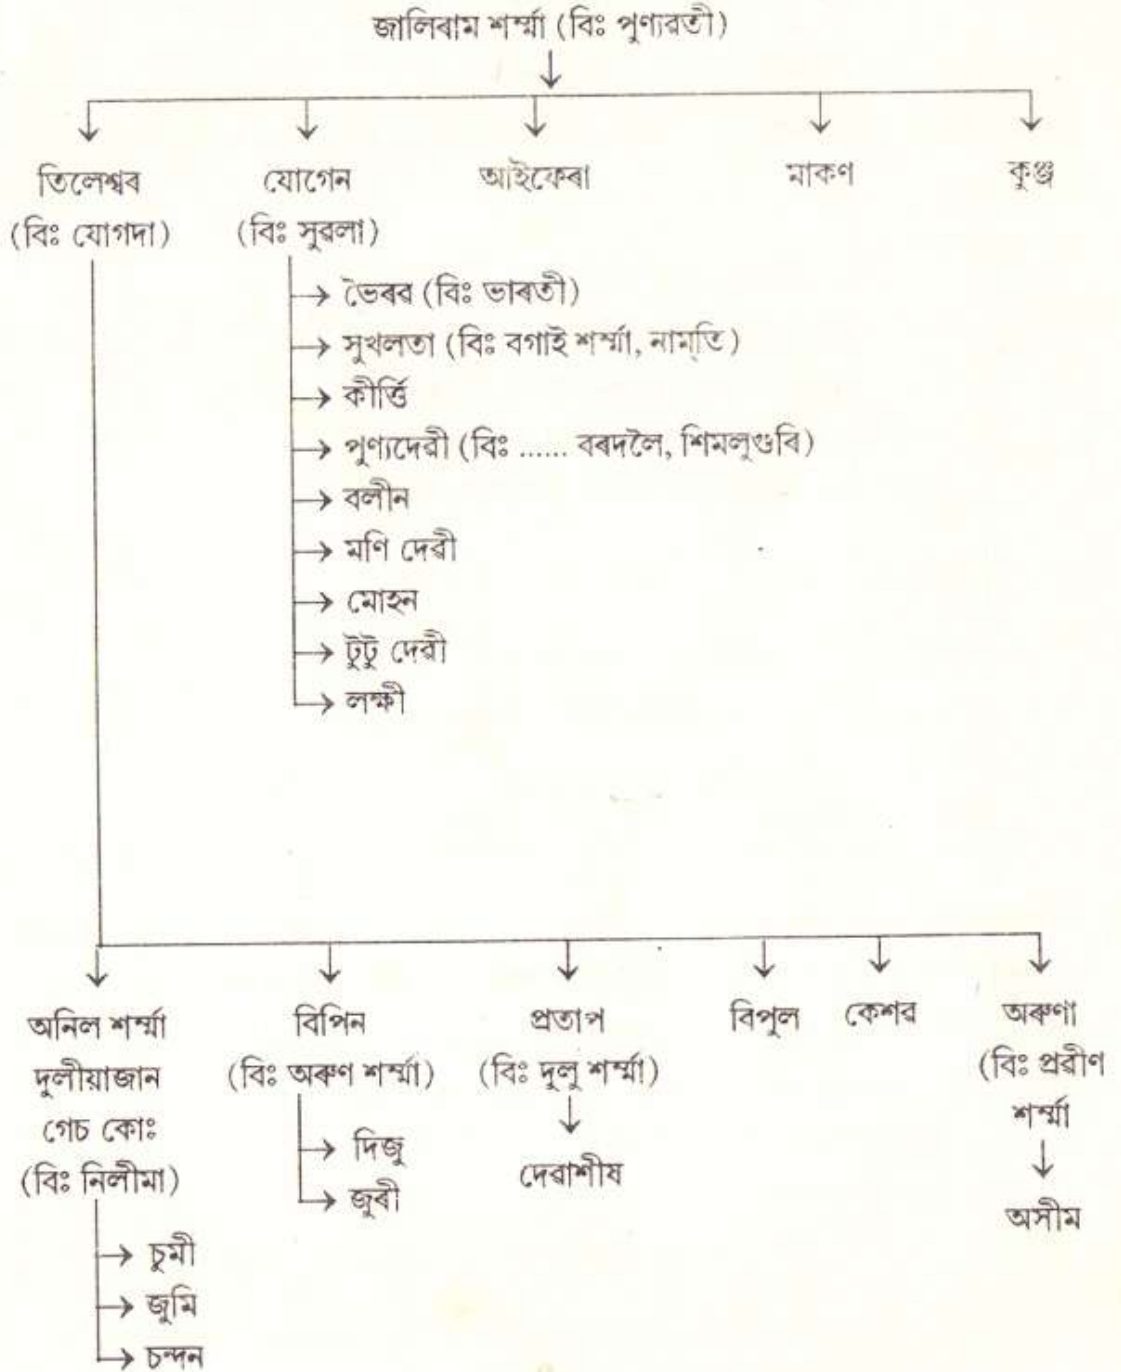 জালিৰাম শৰ্ম্মা (বিঃ পুণ্যৱতী)
তিলেশ্বৰ
(বিঃ যোগদা)
যোগেন
(বিঃ সুৱলা)
আইফেৰা
মাকণ
কুঞ্জ
ভৈৰৱ (বিঃ ভাৰতী)
সুখলতা (বিঃ বগাই শৰ্ম্মা, নাম্‌তি)
কীৰ্ত্তি
পুণ্যদেৱী (বিঃ ...... বৰদলৈ, শিমলুগুৰি)
বলীন
মণি দেৱী
মোহন
টুটু দেৱী
লক্ষী
অনিল শৰ্ম্মা
দুলীয়াজান
গেচ কোঃ
(বিঃ নিলীমা)
চুমী
জুমি
চন্দন
বিপিন
(বিঃ অৰুণ শৰ্ম্মা)
দিজু
জুৰী
প্ৰতাপ
(বিঃ দুলু শৰ্ম্মা)
দেৱাশীষ
বিপুল
কেশৱ
অৰুণা
(বিঃ প্ৰৱীণ
শৰ্ম্মা
অসীম